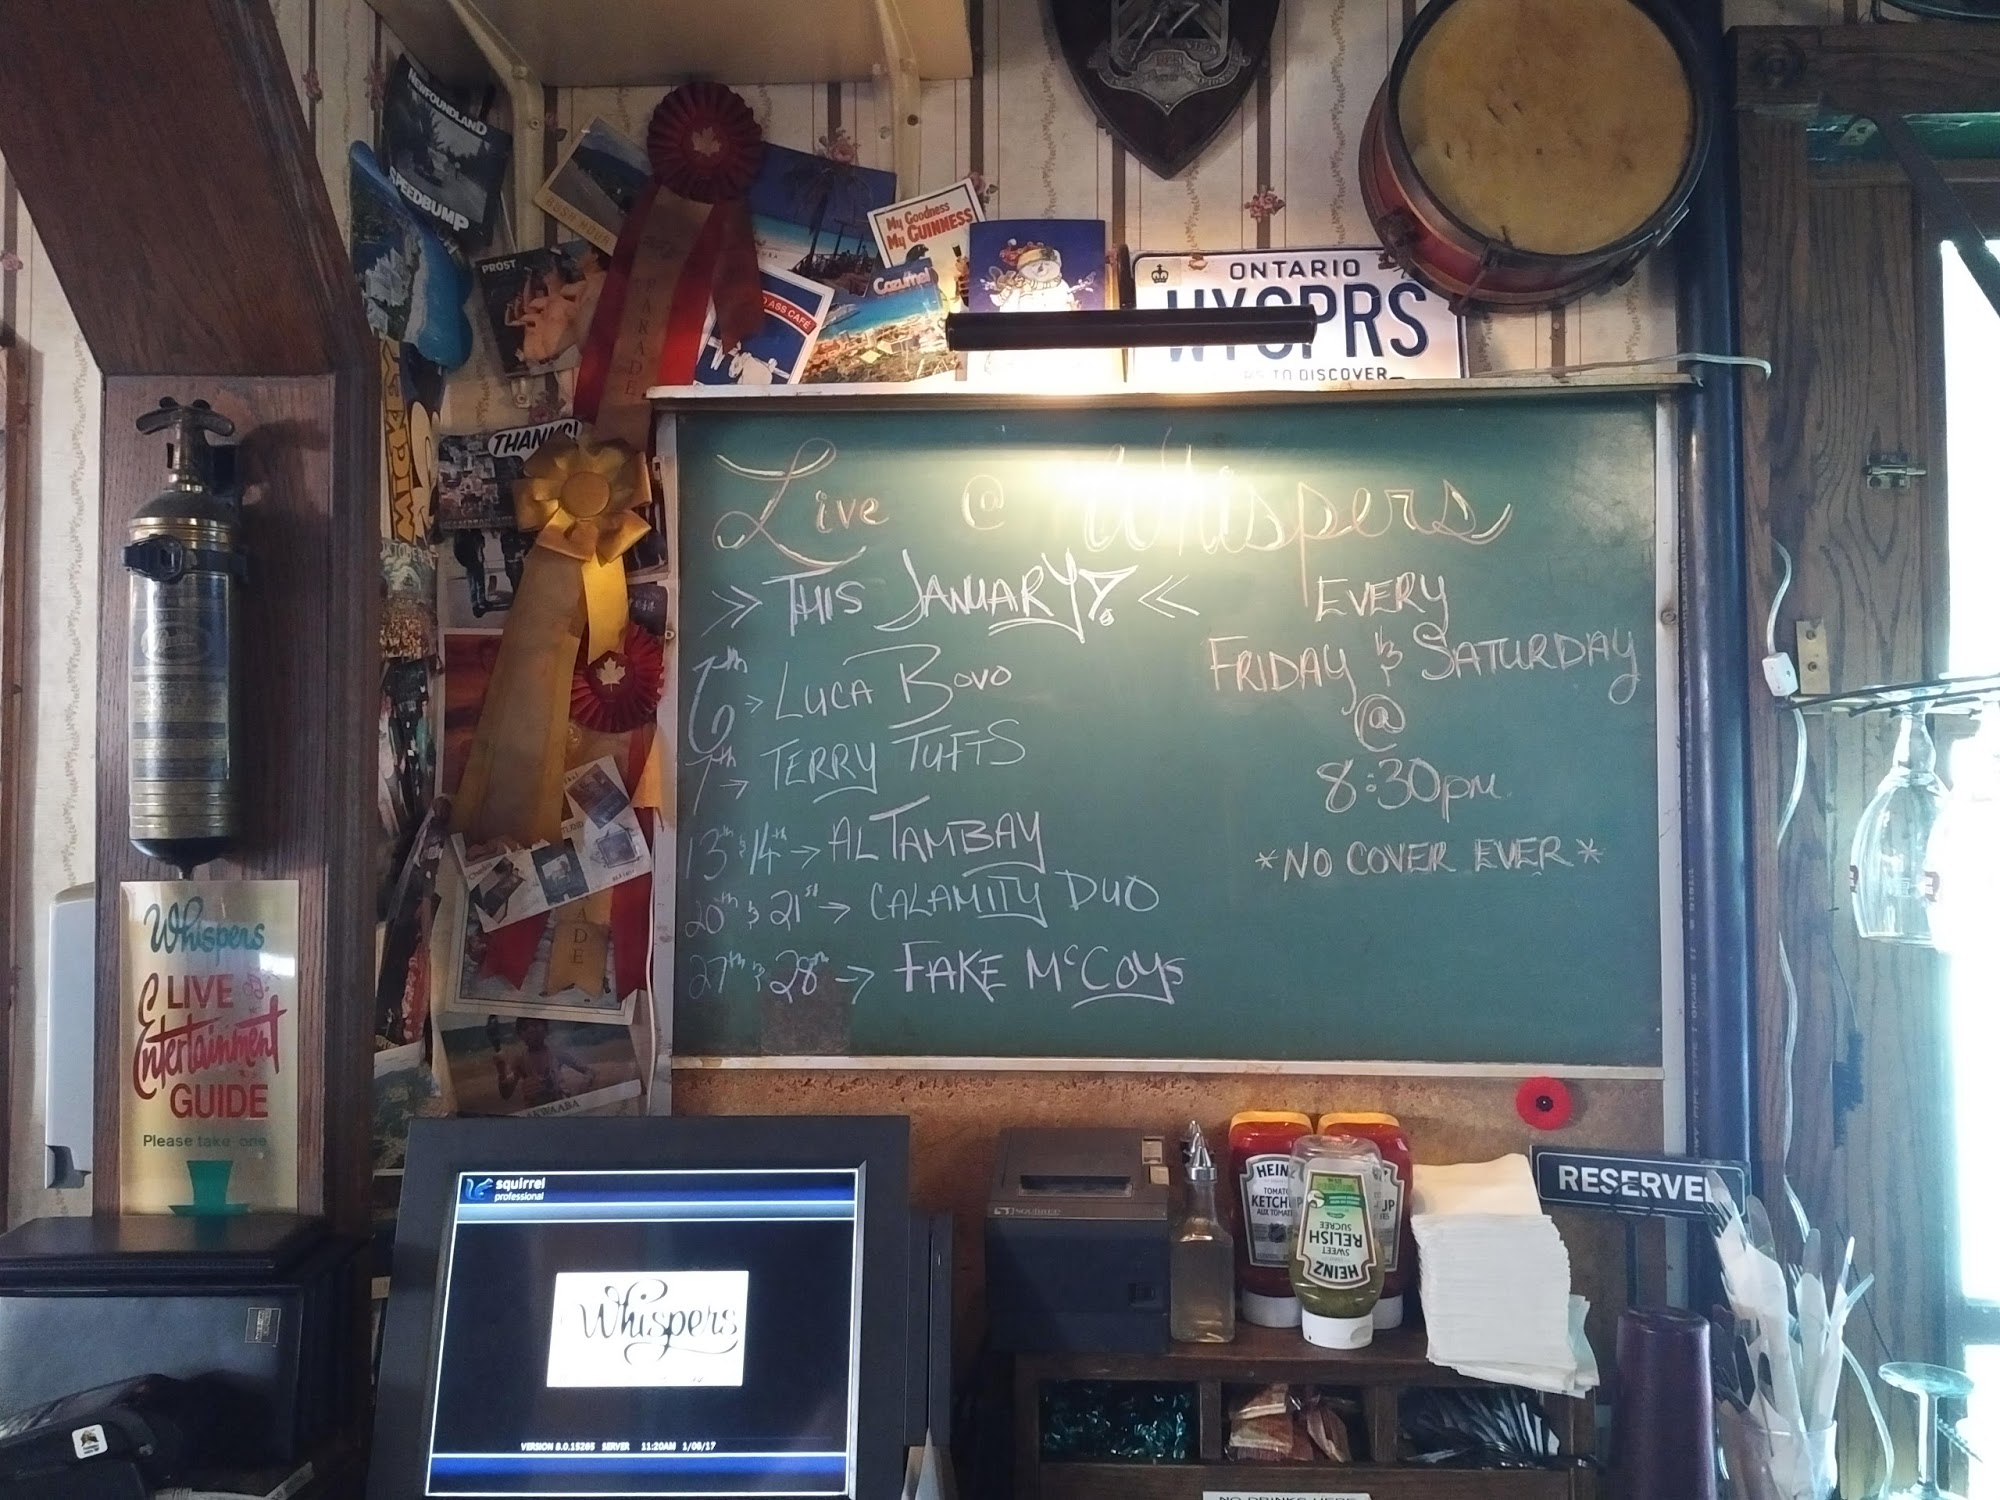 NEWFOUNDLAND
SPEEDBUMP
RUSH HOUR
PROST
My GOODNESS
My GUINNESS
ASS CAFÉ
Cozumel
ONTARIO
PRS
TO DISCOVER
PARADE
THANKS!
Live @ Whispers
>> THIS JANUARY! <<
6th > LUCA BOVO
7th → TERRY TUFTS
13th & 14th → AL TAMBAY
20th & 21st → CALAMITY DUO
27th & 28th → FAKE McCOYs
EVERY
FRIDAY & SATURDAY
@
8:30pm
*NO COVER EVER*
AKWAABA
Whispers
LIVE
Entertainment
GUIDE
Please take one
squirrel
professional
Whispers
VERSION 8.0.15265 SERVER 11:20AM 1/09/17
SQUIRREL
HEINZ
TOMATO
KETCHUP
AUX TOMATES
HEINZ
SWEET
RELISH
SUCRÉE
RESERVE
NO DRINKS HERE